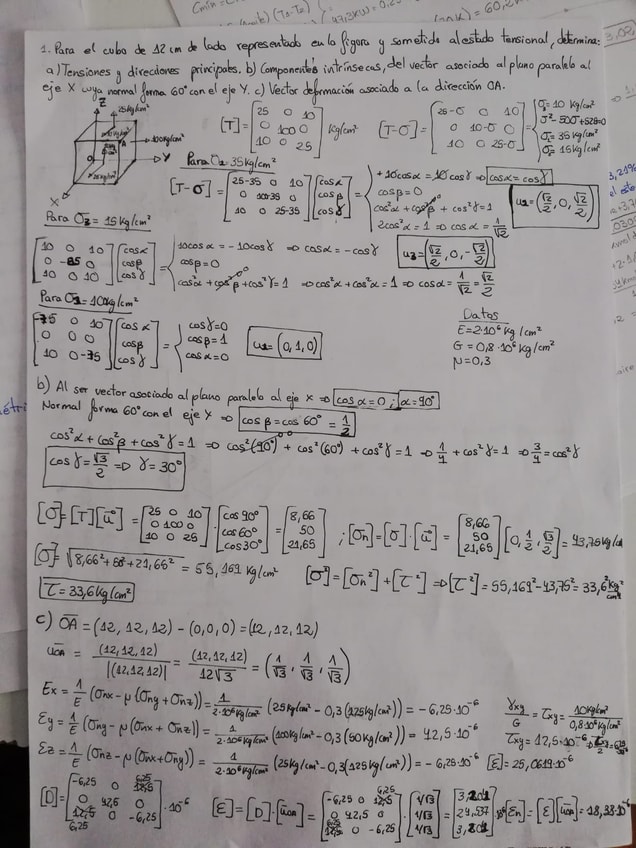 1. Para el cubo de 12 cm de lado representado en la figura y sometido al estado tensional, determina:
a) Tensiones y direcciones principales. b) Componentes intrínsecas, del vector asociado al plano paralelo al
eje X cuya normal forma 60º con el eje Y. c) Vector deformación asociado a la dirección OA.
Z 25kg/cm² 100kg/cm² A O Y X
[T] = [25 0 10; 0 100 0; 10 0 25] Kg/cm² [T-σ] = [25-σ 0 10; 0 10-σ 0; 10 0 25-σ] = { σ₁ = 10 Kg/cm²
σ² - 50σ + 525 = 0
σ₂ = 35 Kg/cm²
σ₃ = 15 Kg/cm²
Para σ₂ 35 Kg/cm²
[T-σ] = [25-35 0 10; 0 100-35 0; 10 0 25-35] [cosα; cosβ; cosγ] = { +10cosα = 10cosγ ⇒ cosα = cosγ
cosβ = 0
cos²α + cos²β + cos²γ = 1
2cos²α = 1 ⇒ cosα = 1/√2
u₂ = (√2/2, 0, √2/2)
Para σ₃ = 15 Kg/cm²
[10 0 10; 0 -85 0; 10 0 10] [cosα; cosβ; cosγ] = { 10cosα = -10cosγ ⇒ cosα = -cosγ
cosβ = 0
cos²α + cos²β + cos²γ = 1 ⇒ cos²α + cos²α = 1 ⇒ cosα = 1/√2 = √2/2
u₃ = (√2/2, 0, -√2/2)
Para σ₁ = 100 kg/cm²
[-75 0 10; 0 0 0; 10 0 -75] [cosα; cosβ; cosγ] = { cosγ = 0
cosβ = 1
cosα = 0
u₁ = (0, 1, 0)
Datos
E = 2·10⁶ Kg/cm²
G = 0,8·10⁶ Kg/cm²
μ = 0,3
b) Al ser vector asociado al plano paralelo al eje X ⇒ cosα = 0; α = 90º
Normal forma 60º con el eje Y ⇒ cosβ = cos 60º = 1/2
cos²α + cos²β + cos²γ = 1 ⇒ cos²(90º) + cos²(60º) + cos²γ = 1 ⇒ 1/4 + cos²γ = 1 ⇒ 3/4 = cos²γ
cosγ = √3/2 ⇒ γ = 30º
[σ] = [T][u] = [25 0 10; 0 100 0; 10 0 25] · [cos90º; cos60º; cos30º] = [8,66; 50; 21,65] ; [σn] = [σ]·[u] = [8,66; 50; 21,65] [0, 1/2, √3/2] = 43,75 kg/cm²
[σ] = √8,66² + 50² + 21,65² = 55,169 Kg/cm² [σ²] = [σn²] + [τ²] ⇒ [τ²] = 55,169² - 43,75² = 33,6² kg/cm²
τ = 33,6 kg/cm²
c) OA = (12, 12, 12) - (0,0,0) = (12, 12, 12)
uOA = (12,12,12)/|(12,12,12)| = (12,12,12)/12√3 = (1/√3, 1/√3, 1/√3)
Ex = 1/E (σnx - μ(σny + σnz)) = 1/2·10⁶kg/cm² (25kg/cm² - 0,3(125kg/cm²)) = -6,25·10⁻⁶
Ey = 1/E (σny - μ(σnx + σnz)) = 1/2·10⁶kg/cm² (100kg/cm² - 0,3(50kg/cm²)) = 42,5·10⁻⁶
Ez = 1/E (σnz - μ(σnx + σny)) = 1/2·10⁶kg/cm² (25kg/cm² - 0,3(125kg/cm²)) = -6,25·10⁻⁶
γxy/G = τxy = 10kg/cm²/0,8·10⁶kg/cm²
τxy = 12,5·10⁻⁶
[E] = 25,0619·10⁻⁶
[D] = [-6,25 0 6,25; 0 42,5 0; 6,25 0 -6,25] ·10⁻⁶ [E] = [D]·[uOA] = [-6,25 0 6,25; 0 42,5 0; 0 -6,25] · [1/√3; 1/√3; 1/√3] = [24,537] [En] = [E][uOA] = 18,38·10⁻⁶